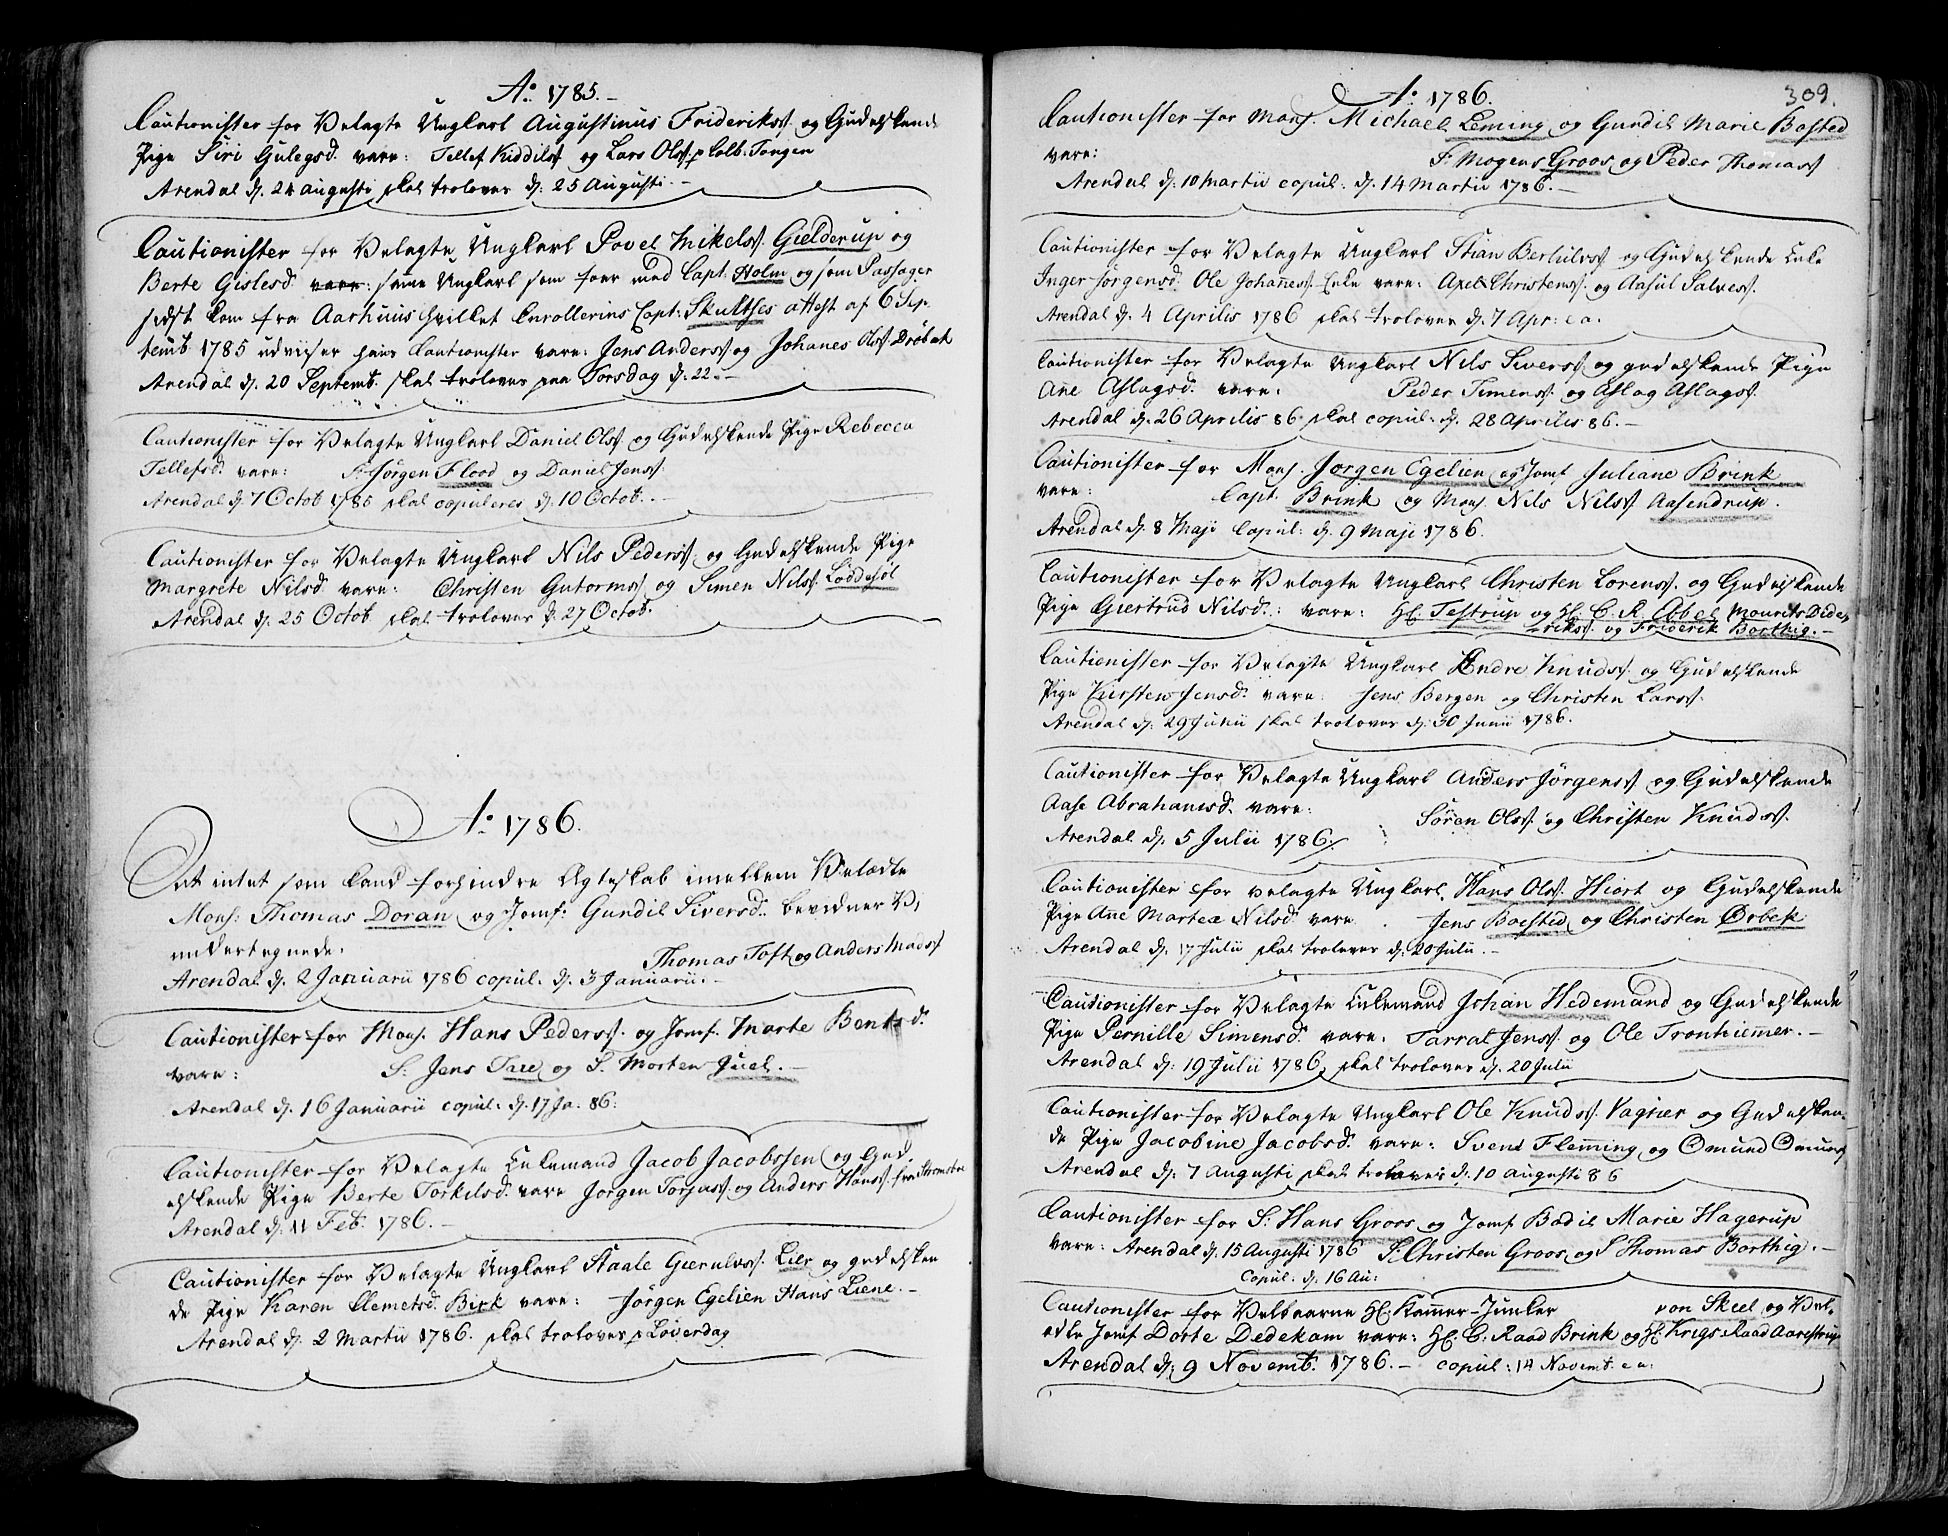 Ao 1785.–
Cautionister for Velagte Ungkarl Augustinus Frideriks. og Gudelskende
Pige Siri Gulegsd. vare: Tellef Kiddils. og Lars Ols. p Colb. Tangen
Arendal d. 24 augusti skal troloves d. 25 Augusti.–
Cautionister for Velagte Ungkarl Povel Mikels. Gielderup og
Berte Gislesd. vare: samme Ungkarl som foer med Capt. Holm og som Passager
sidst kom fra Aarhuus hvilket Enrollerins Capt: Skultses attest af 6 Sep,
temb. 1785 udviiser hans Cautionister vare: Jens Anders. og Johanes Ols. Drøbak
Arendal d. 20 Septemb. skal troloves paa Torsdag d. 22.–
Cautionister for Velagte Ungkarl Daniel Ols. og Gudelskende Pige Rebecca
Tellefsd. vare: Sr Jørgen Flood og Daniel Jens.
Arendal d. 7 Octob 1785 skal copuleres d. 10 Octob.–
Cautionister for Velagte Ungkarl Nils Peders. og Gudelskende Pige
Margrete Nilsd. vare: Christen Gutorms. og Simen Nils. Løddesøl
Arendal d. 25 Octob skal troloves d. 27 Octob.
Ao 1786.
At intet som kand forhindre Ægteskab imellem Velædle
Mons: Thomas Doran og Jomf: Gundil Siversd. bevidner Vi
undertegnede. Thomas Toft og Anders Mads.
Arendal d. 2 Januarii 1786 copul. d. 3 Januarii.–
Cautionister for Mons. Hans Peders. og Jomf. Marte Bentsd.
vare: S. Jens Tare og S. Morten Juel.–
Arendal d. 16 Januarii copul: d. 17 Ja. 86.
Cautionister for Velagte Enkemand Jacob Jacobssen og Gud,
elskende Pige Berte Torkilsd. vare Jørgen Torjus. og Anders Hans. fra
Arendal d. 11 Feb. 1786.–
Cautionister for Velagte Ungkarl Staale Gierulvs. Lier og gudelsken
de Pige Karen Clemetsd. Birk vare: Jørgen Egelien Hans Liene.–
Arendal d. 2 Martii 1786. skal troloves p Løverdag
309.
Ao 1786.
Cautionister for Mons. Michael Leming og Gundil Marie Bosted
vare: Sr Mogens Groos og Peder Thomas.
Arendal d. 10 Martii copul: d. 14 Martii 1786.–
Cautionister for Velagte Ungkarl Stian Bertulvs. og Gudelskende Enke
Inger Jørgensd. Ole Johanes. Enke vare: Apel Christens. og Aasul Salves.
Arendal d. 4 Aprilis 1786 skal troloves d. 7 Apr: e.a.
Cautionister for Velagte Ungkarl Nils Sivers. og gudelskende Pige
Ane Aslagsd. vare: Peder Simens. og Aslag Aslags.
Arendal d. 26 Aprilis 86 skal copul. d. 28 Aprilis 86.–
Cautionister for Mons. Jørgen Egelien og Jomf Juliane Brink
vare: Capt. Brink og Mons. Nils Nils. Aasendrup.
Arendal d. 8 Maji Copul: d. 9 Maji 1786.
Cautionister for Velagte Ungkarl Christen Lorens. og Gudelskende
Pige Giertrud Nilsd.: vare: Hl. Testrup og Hl. C. R. Abel Mourits Dide,
riks. og Friderik Borthig.–
Cautionister for Velagte Ungkarl Endre Knuds. og Gudelskende
Pige Kirsten Jensd. vare: Jens Bergen og Christen Lars.
Arendal d. 29 Junii skal troloves d. 30 Junii 1786.
Cautionister for Velagte Ungkarl Anders Jørgens. og Gudelskende
Aase Abrahamsd. vare: Søren Ols. og Christen Knuds.
Arendal d. 5 Julii 1786.
Cautionister for velagte Ungkarl Hans Ols. Hiort og Gudelskende
Pige Ane Martea Nilsd. vare. Jens Boested og Christen Ørbek
Arendal d. 17 Julii skal troloves d. 20 Julii.–
Cautionister for Velagte Enkemand Johan Hedemand og Gudelskende
Pige Pernille Simensd. vare. Tarral Jens. og Ole Tronhiemer.–
Arendal d. 19 Julii 1786, skal troloves d. 20 Julii
Cautionister for Velagte Ungkarl Ole Knuds. Vagner og Gudelsken,
de Pige Jacobine Jacobsd. vare: Svend Flemming og Omund Omunds
Arendal d. 7 augusti skal troloves d. 10 augusti 86
Cautionister for S: Hans Groos og Jomf Bodil Marie Hagerup
vare: Arendal d. 15 Augusti 1786 Sr Christen Groos og S Thomas Borthig.–
Copul: d. 16 Au:
Cautionister for Velbaarne Hl: Kammer-Junker von Skeel og Vel,
edle Jomf Dorte Dedekam vare: Hl. C: Raad Brink og Hl. Krigs-Raad Aarestrup
Arendal d. 9 Novemb. 1786.– copul: 14 Novemb. e.a.